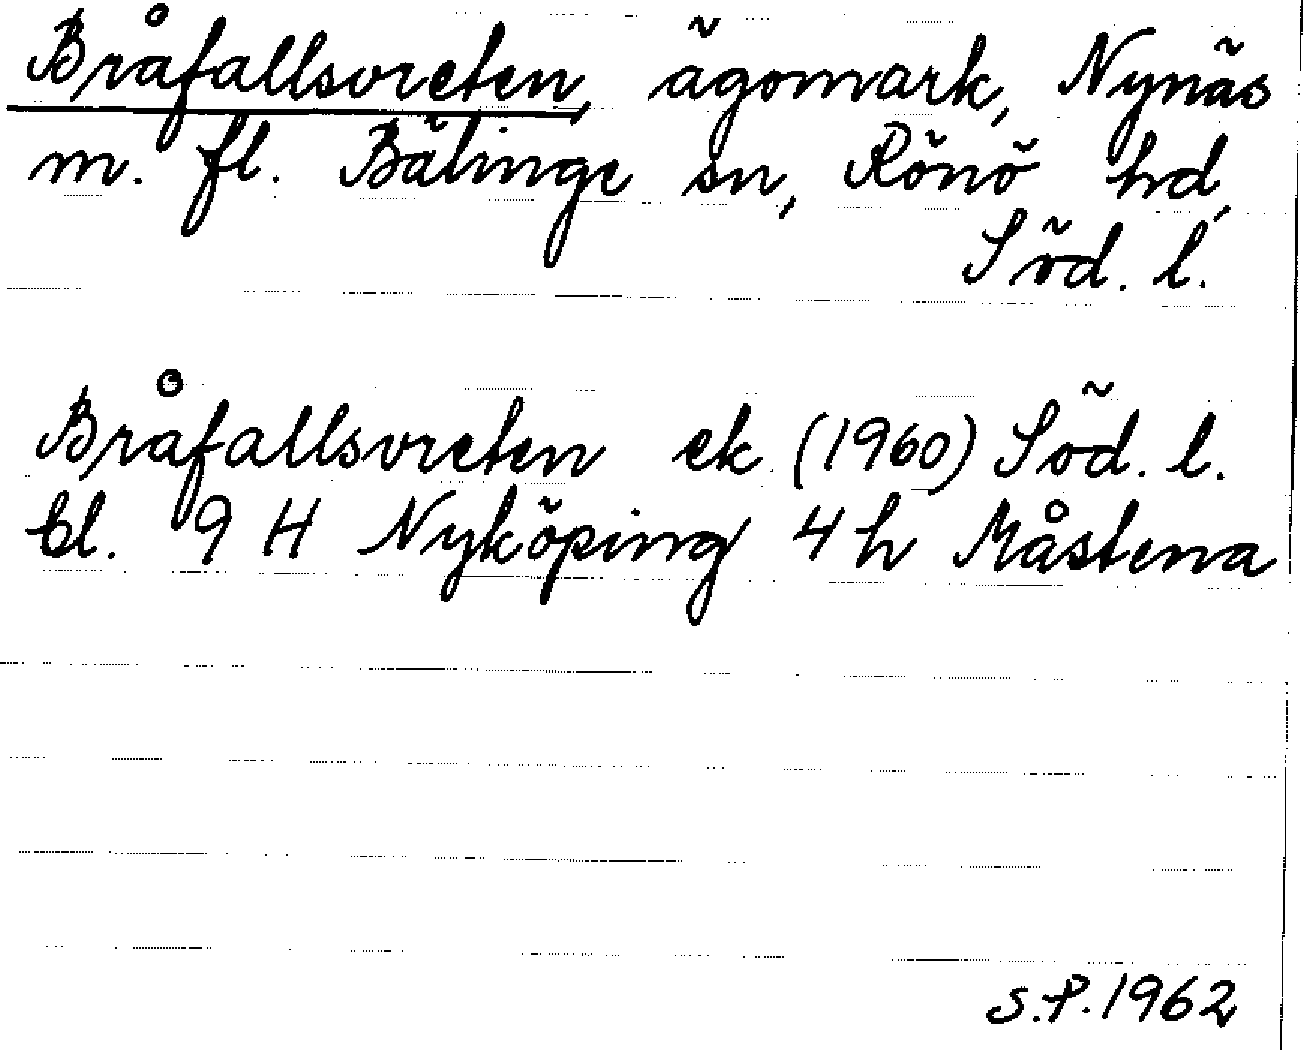 Bråfallsvreten, ägomark, Nynäs
m. fl. Bälinge sn, Rönö hd,
Söd. l.
Bråfallsvreten ek (1960) Söd. l.
bl. 9 H Nyköping 4 h Måstena
S.P. 1962